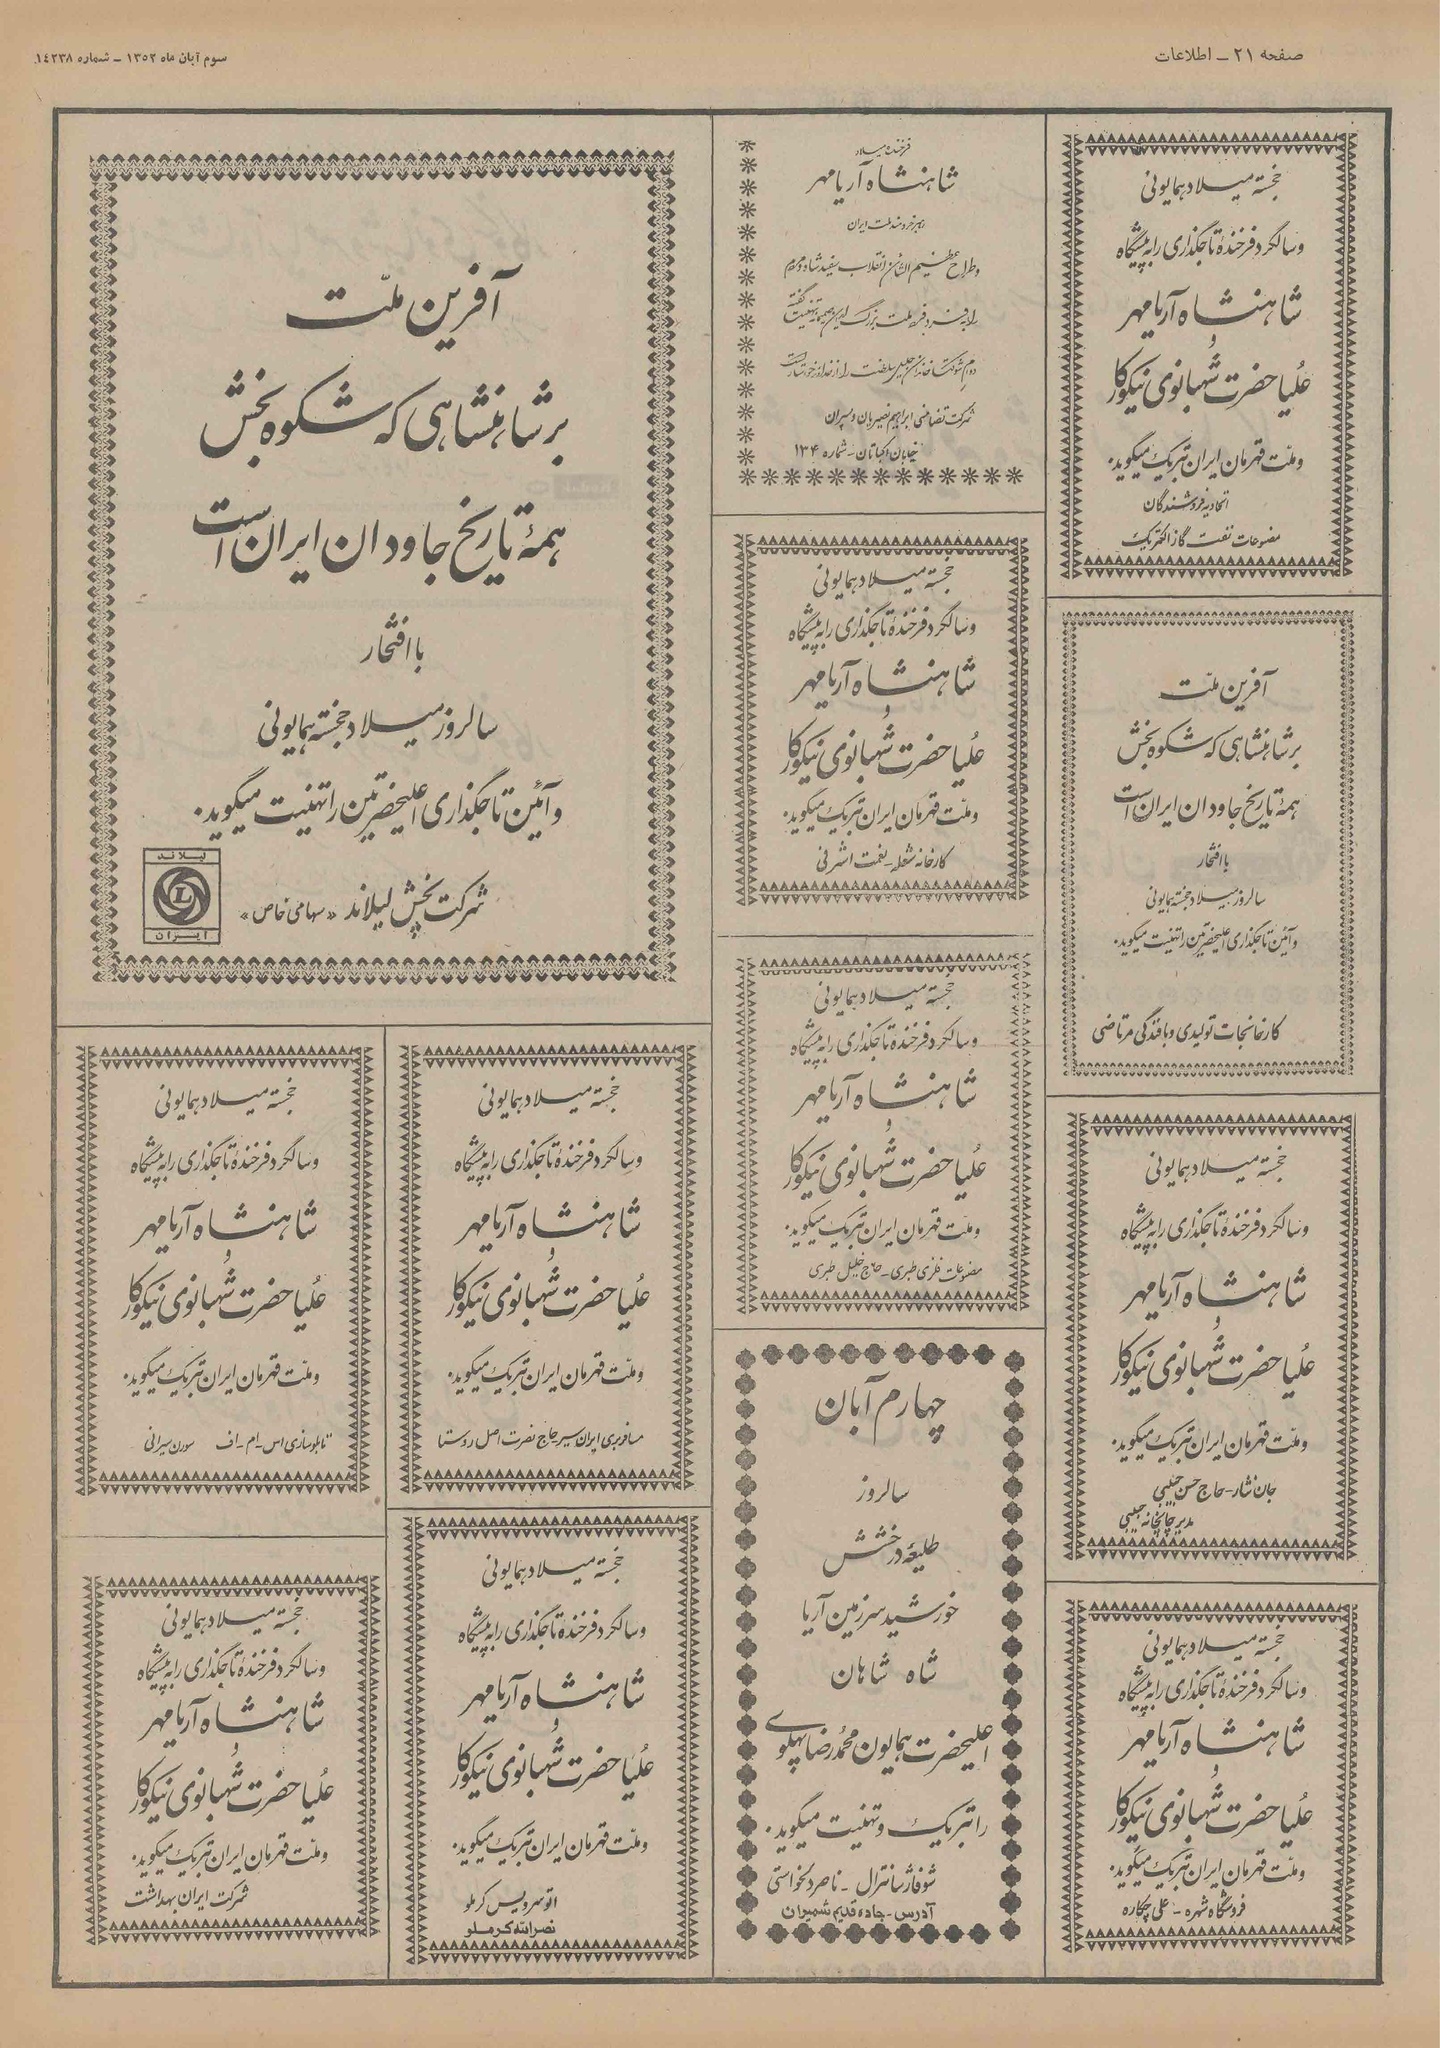 صفحه ۲۱ ـ اطلاعات
سوم آبان ماه ۱۳۵۲ ـ شماره ۱۴۲۳۸
خجسته میلاد همایونی
و سالگرد فرخندهٔ تاجگذاری را به پیشگاه
شاهنشاه آریامهر
و
علیا حضرت شهبانوی نیکوکار
و ملت قهرمان ایران تبریک میگوید.
اتحادیه فروشندگان
مصنوعات نفت گاز الکتریک
آفرین ملت
بر شاهنشاهی که شکوه بخش
همهٔ تاریخ جاودان ایران است
با افتخار
سالروز میلاد خجسته همایونی
و آئین تاجگذاری اعلیحضرتین را تهنیت میگوید.
کارخانجات تولیدی و بافندگی مرتاضی
خجسته میلاد همایونی
و سالگرد فرخندهٔ تاجگذاری را به پیشگاه
شاهنشاه آریامهر
و
علیا حضرت شهبانوی نیکوکار
و ملت قهرمان ایران تبریک میگوید.
جان نثار ـ حاج حسن حبیبی
مدیر چاپخانه حبیبی
خجسته میلاد همایونی
و سالگرد فرخندهٔ تاجگذاری را به پیشگاه
شاهنشاه آریامهر
و
علیا حضرت شهبانوی نیکوکار
و ملت قهرمان ایران تبریک میگوید.
فروشگاه شهره ـ علی چکاره
فرخنده میلاد
شاهنشاه آریامهر
رهبر خردمند ملت ایران
و طراح عظیم الشان انقلاب سفید شاه و مردم
را به فرد فرد ملت بزرگ ایران صمیمانه تهنیت گفته
دوام شوکت خاندان جلیل سلطنت را از خدا درخواستار است
شرکت تضامنی ابراهیم نصیریان و پسران
خیابان اکباتان ـ شماره ۱۳۴
خجسته میلاد همایونی
و سالگرد فرخندهٔ تاجگذاری را به پیشگاه
شاهنشاه آریامهر
و
علیا حضرت شهبانوی نیکوکار
و ملت قهرمان ایران تبریک میگوید.
کارخانه شعله ـ نعمت اشرفی
خجسته میلاد همایونی
و سالگرد فرخندهٔ تاجگذاری را به پیشگاه
شاهنشاه آریامهر
و
علیا حضرت شهبانوی نیکوکار
و ملت قهرمان ایران تبریک میگوید.
مصنوعات فلزی طبری ـ حاج خلیل طبری
چهارم آبان
سالروز
طلیعه درخشش
خورشید سرزمین آریا
شاه شاهان
اعلیحضرت همایون محمدرضا پهلوی
را تبریک و تهنیت میگوید.
شوفاژ سانترال ـ ناصر دلخواستی
آدرس ـ جاده قدیم شمیران
آفرین ملت
بر شاهنشاهی که شکوه بخش
همهٔ تاریخ جاودان ایران است
با افتخار
سالروز میلاد خجسته همایونی
و آئین تاجگذاری اعلیحضرتین را تهنیت میگوید.
شرکت پخش لیلاند «سهامی خاص»
لیلاند
L
ایران
خجسته میلاد همایونی
و سالگرد فرخندهٔ تاجگذاری را به پیشگاه
شاهنشاه آریامهر
و
علیا حضرت شهبانوی نیکوکار
و ملت قهرمان ایران تبریک میگوید.
مسافربری ایران سیر حاج نصرت اصل روستا
خجسته میلاد همایونی
و سالگرد فرخندهٔ تاجگذاری را به پیشگاه
شاهنشاه آریامهر
و
علیا حضرت شهبانوی نیکوکار
و ملت قهرمان ایران تبریک میگوید.
اتوسرویس کرملو
نصرالله کرملو
خجسته میلاد همایونی
و سالگرد فرخندهٔ تاجگذاری را به پیشگاه
شاهنشاه آریامهر
و
علیا حضرت شهبانوی نیکوکار
و ملت قهرمان ایران تبریک میگوید.
تابلوسازی اس ـ ام ـ اف سورن میرانی
خجسته میلاد همایونی
و سالگرد فرخندهٔ تاجگذاری را به پیشگاه
شاهنشاه آریامهر
و
علیا حضرت شهبانوی نیکوکار
و ملت قهرمان ایران تبریک میگوید.
شرکت ایران بهداشت